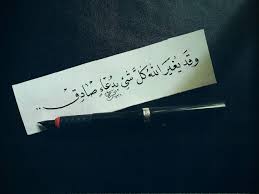 وقد يغير الله كل شيء بدعاء صادق ..